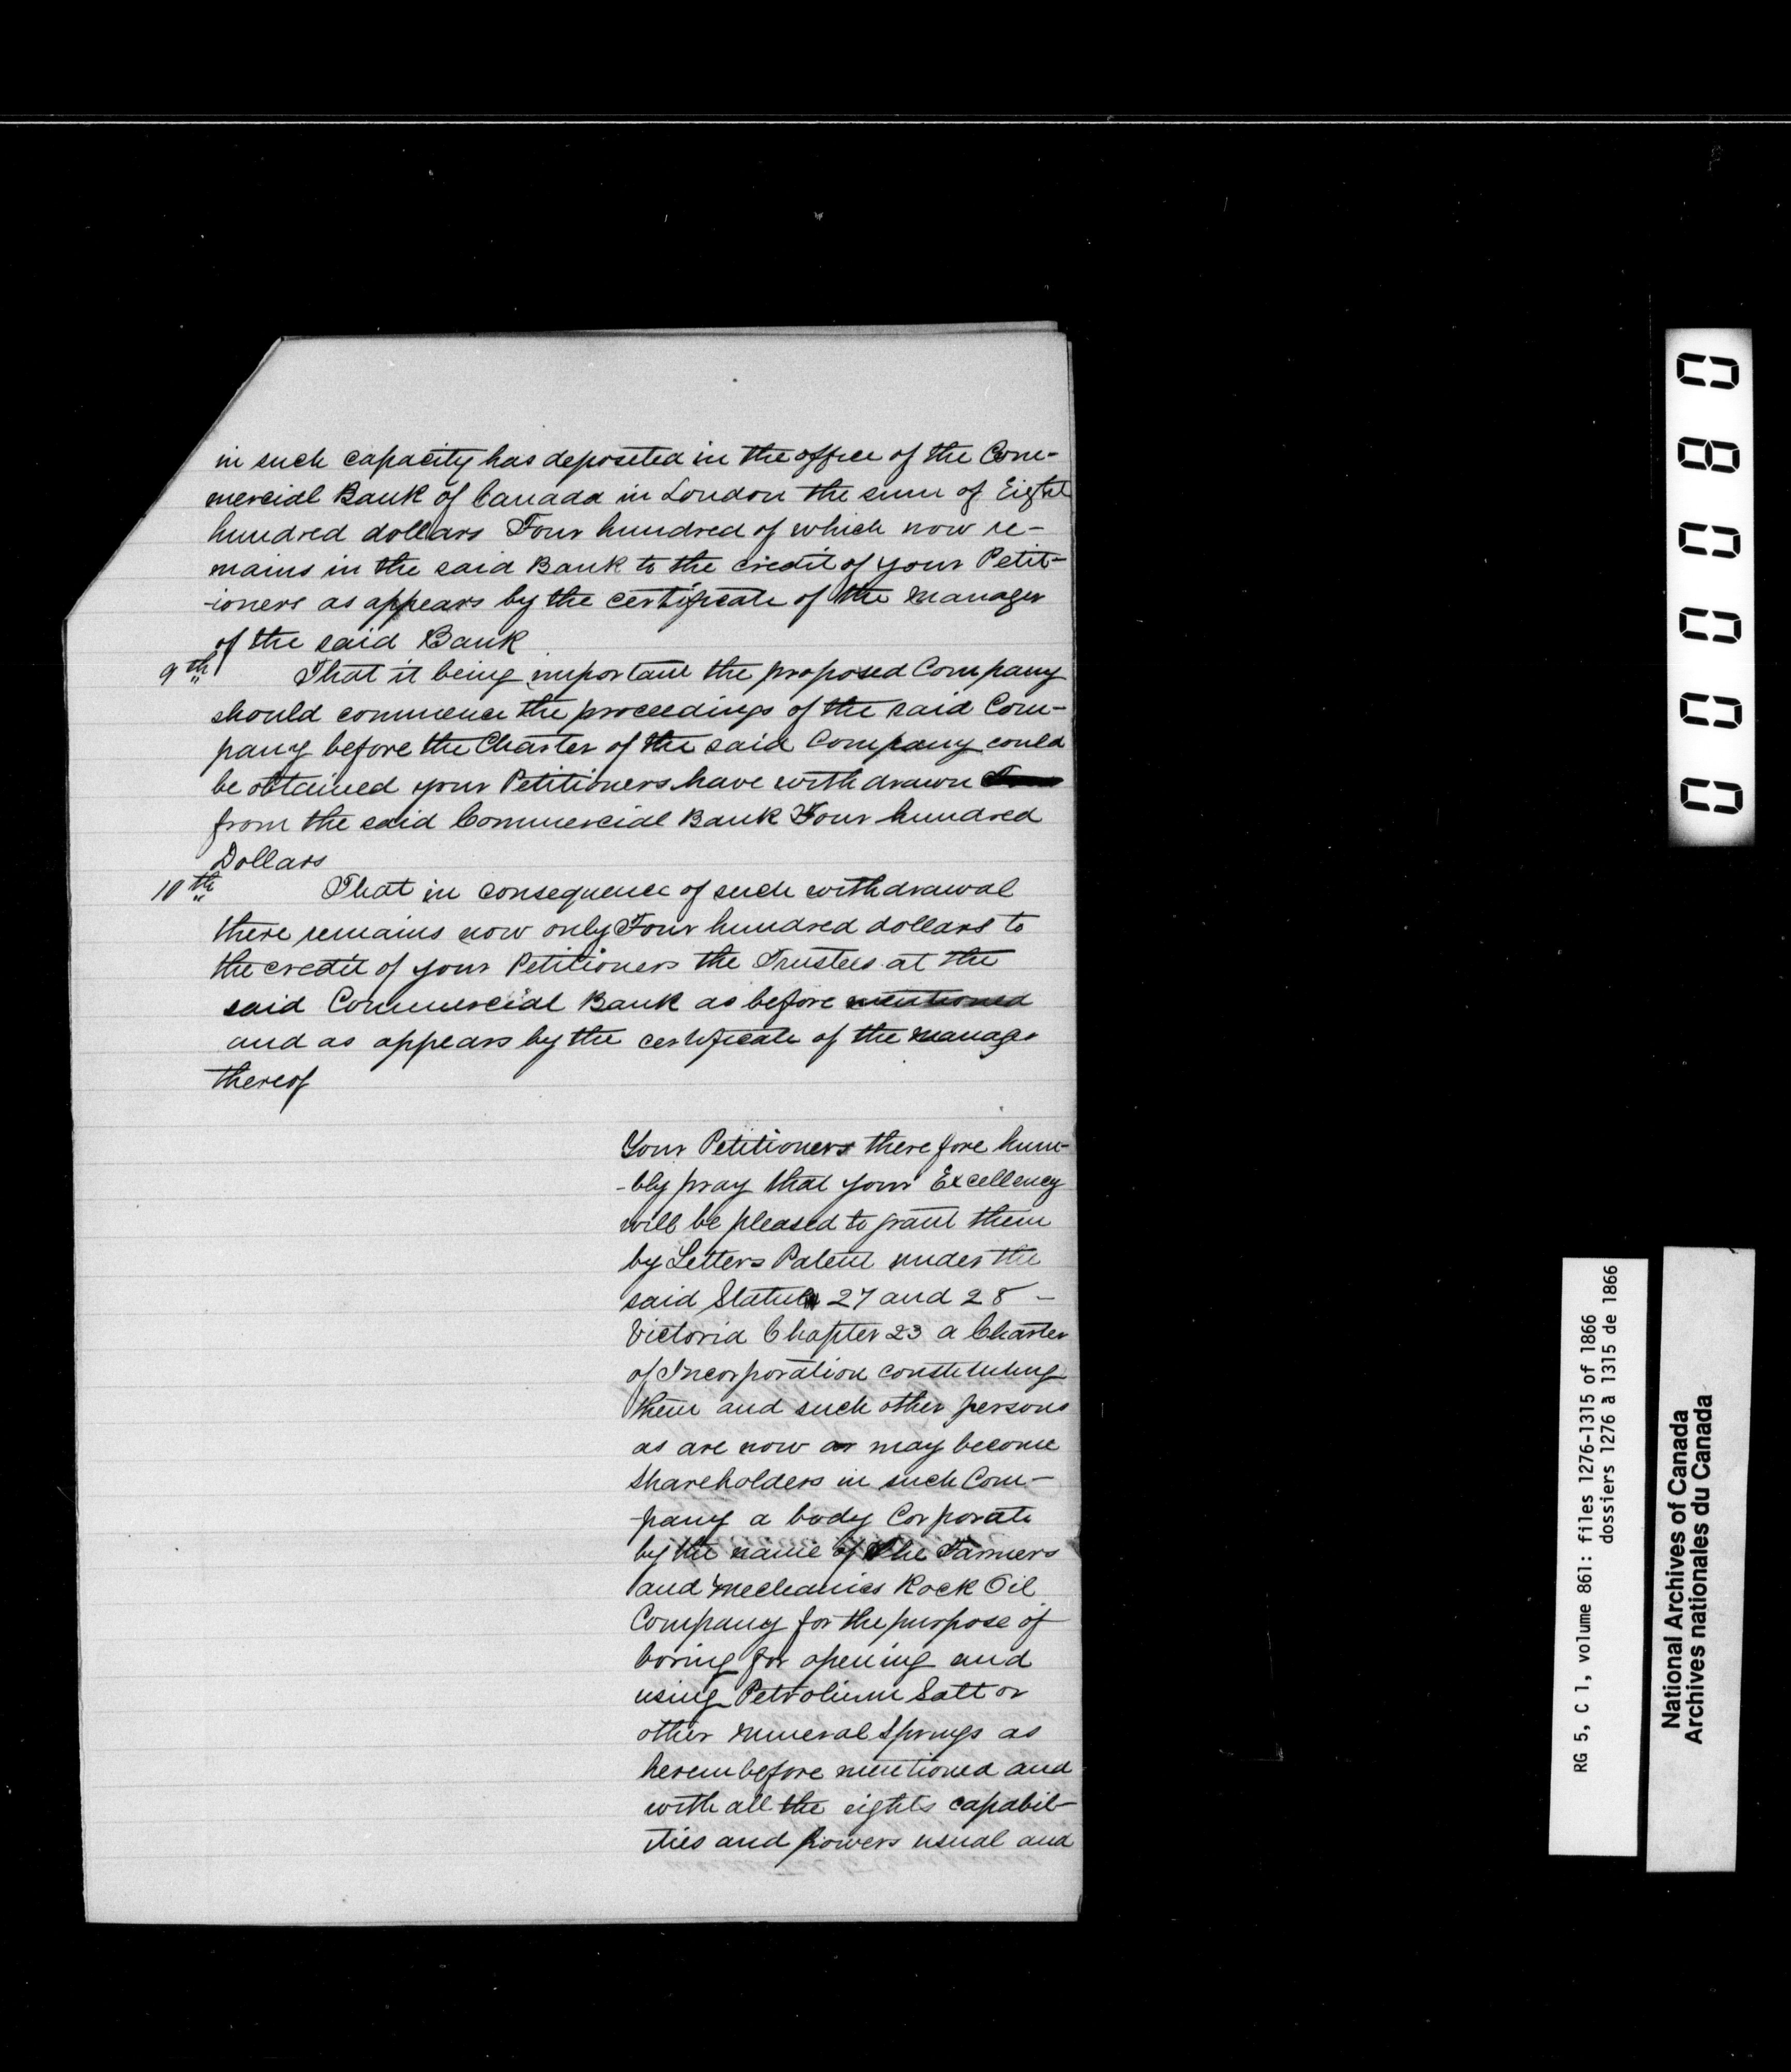 in such capacity has deposited in the office of the Com-
mercial Bank of Canada in London the sum of Eight
hundred dollars Four hundred of which now re-
mains in the said Bank to the credit of your Petit-
-ioners as appears by the certificate of the Manager
of the said Bank
9th That it being important the proposed Company
should commence the proceedings of the said Com-
pany before the Charter of the said Company could
be obtained your Petitioners have withdrawn
from the said Commercial Bank Four hundred
Dollars
10th That in consequence of such withdrawal
there remains now only Four hundred dollars to
the credit of your Petitioners the Trustees at the
said Commercial Bank as before mentioned
and as appears by the certificate of the Manager
thereof
Your Petitioners therefore hum-
-bly pray that your Excellency
will be pleased to grant them
by Letters Patent under the
said Statute 27 and 28 -
Victoria Chapter 23 a Charter
of Incorporation constituting
them and such other persons
as are now or may become
Shareholders in such Com-
pany a body Corporate
by the name of The Farmers
and Mechanics Rock Oil
Company for the purpose of
boring for opening and
using Petrolium Salt or
other Mineral Springs as
hereinbefore mentioned and
with all the rights capabil-
ities and powers usual and
0000080
RG 5, C 1, volume 861: files 1276-1315 of 1866
dossiers 1276 à 1315 de 1866
National Archives of Canada
Archives nationales du Canada